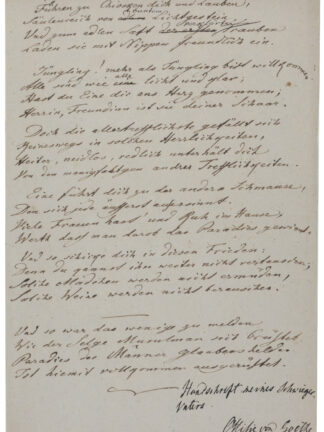 Führen zu Choresken dich und Lauben,
Säulenreich von Lichtgestein,
Und zum edlen Saft Trauben
Laden sie mit Nippen freundlich ein.
Jüngling! mehr als Jüngling bist willkommen
Alle sind wie alle licht und klar;
Hast du Eine dir ans Herz genommen,
Herrin, Freundinn ist sie deiner Schaar.
Doch die allertrefflichste gefällt sich
Keineswegs in solchen Herrlichkeiten,
Heiter, neidlos, redlich unterhält dich
Von den mannigfalt'gen andrer Trefflichkeiten.
Eine führt dich zu der andern Schmause,
Den sich jede äusserst aussinnt;
Viele Frauen hast und Ruh im Hause,
Werth dass man darob das Paradies gewinnt.
Und so schicke dich in diesen Frieden:
Denn du kannst ihn weiter nicht vertauschen;
Solche Mädchen werden nicht ermüden,
Solche Weine werden nicht berauschen.
Und so war das wenige zu melden
Wie der selge Musulman sich brüstet
Paradies der Männer Glaubenshelden
Ist hiemit vollkommen ausgerüstet.
Handschrift meines Schwieger
Vaters
Ottilie von Goethe